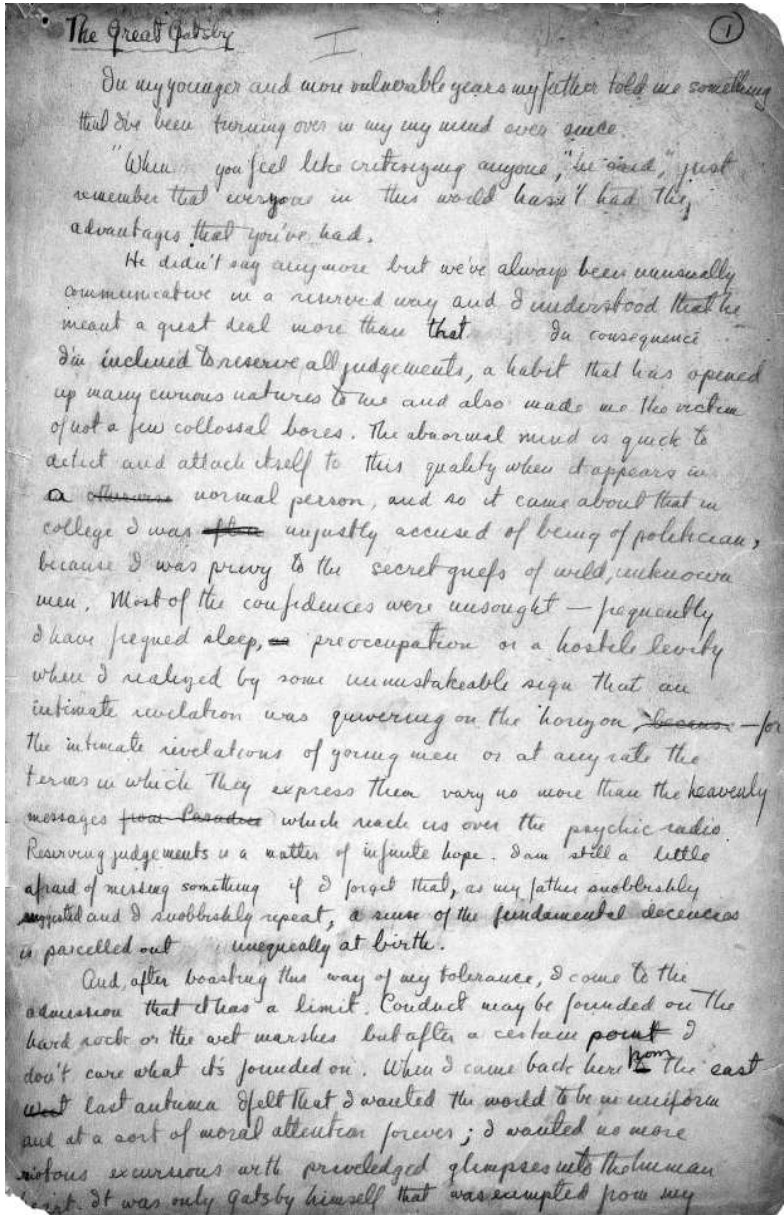 The Great Gatsby
I
1
In my younger and more vulnerable years my father told me something
that I've been turning over in my my mind ever since.
"When you feel like critisizing anyone," he said, "just
remember that everyone in this world hasn't had the
advantages that you've had.
He didn't say anymore but we've always been unusually
communicative in a reserved way and I understood that he
meant a great deal more than that In consequence
I'm inclined to reserve all judgements, a habit that has opened
up many curious natures to me and also made me the victim
of not a few collossal bores. The abnormal mind is quick to
detect and attach itself to this quality when it appears in
a otherwise normal person, and so it came about that in
college I was often unjustly accused of being of politician,
because I was privy to the secret griefs of wild, unknown
men. Most of the confidences were unsought — frequently
I have feigned sleep, preoccupation or a hostile levity
when I realized by some unmistakeable sign that an
intimate revelation was quivering on the horizon, because — for
the intimate revelations of young men or at any rate the
terms in which they express them vary no more than the heavenly
messages from Paradise which reach us over the psychic radio.
Reserving judgements is a matter of infinite hope. I am still a little
afraid of missing something if I forget that, as my father snobbishly
suggested and I snobbishly repeat, a sense of the fundamental decencies
is parcelled out unequally at birth.
And, after boasting this way of my tolerance, I come to the
admission that it has a limit. Conduct may be founded on the
hard rock or the wet marshes but after a certain point I
don't care what it's founded on. When I came back here from the east
west last autumn I felt that I wanted the world to be in uniform
and at a sort of moral attention forever; I wanted no more
riotous excursions with priveledged glimpses into the human
heart. It was only Gatsby himself that was exempted from my